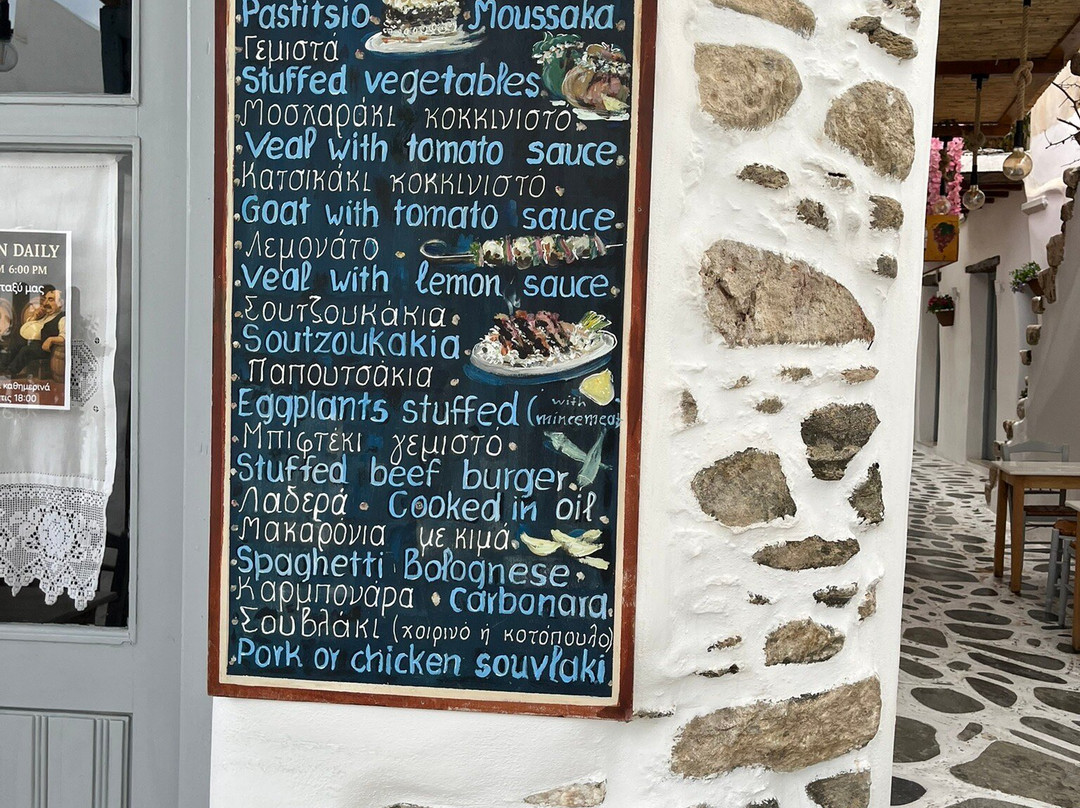 Pastitsio Moussaka
Γεμιστά
Stuffed vegetables
Μοσχαράκι κοκκινιστό
Veal with tomato sauce
Κατσικάκι κοκκινιστό
Goat with tomato sauce
Λεμονάτο
Veal with lemon sauce
Σουτζουκάκια
Soutzoukakia
Παπουτσάκια
Eggplants stuffed (with mincemeat
Μπιφτέκι γεμιστό
Stuffed beef burger
Λαδερά Cooked in oil
Μακαρόνια με κιμά
Spaghetti Bolognese
Καρμπονάρα carbonara
Σουβλάκι (χοιρινό ή κοτόπουλο)
Pork or chicken souvlaki
N DAILY
M 6:00 PM
μας
καθημερινά
τις 18:00